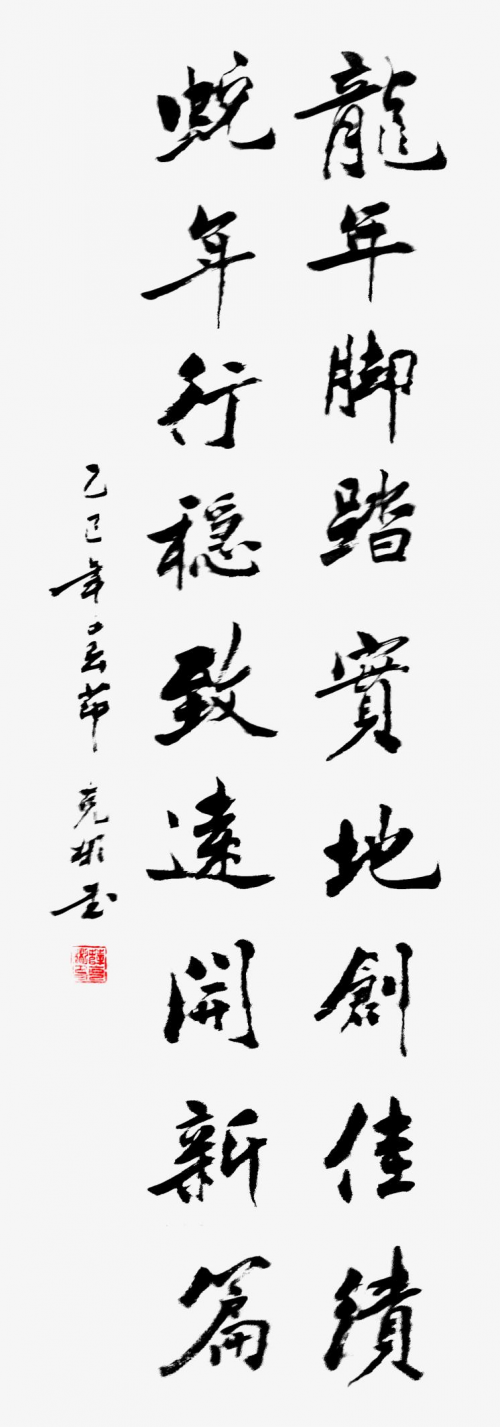 龍年脚踏實地創佳績
蛇年行穩致遠開新篇
乙巳年春節 克彬書